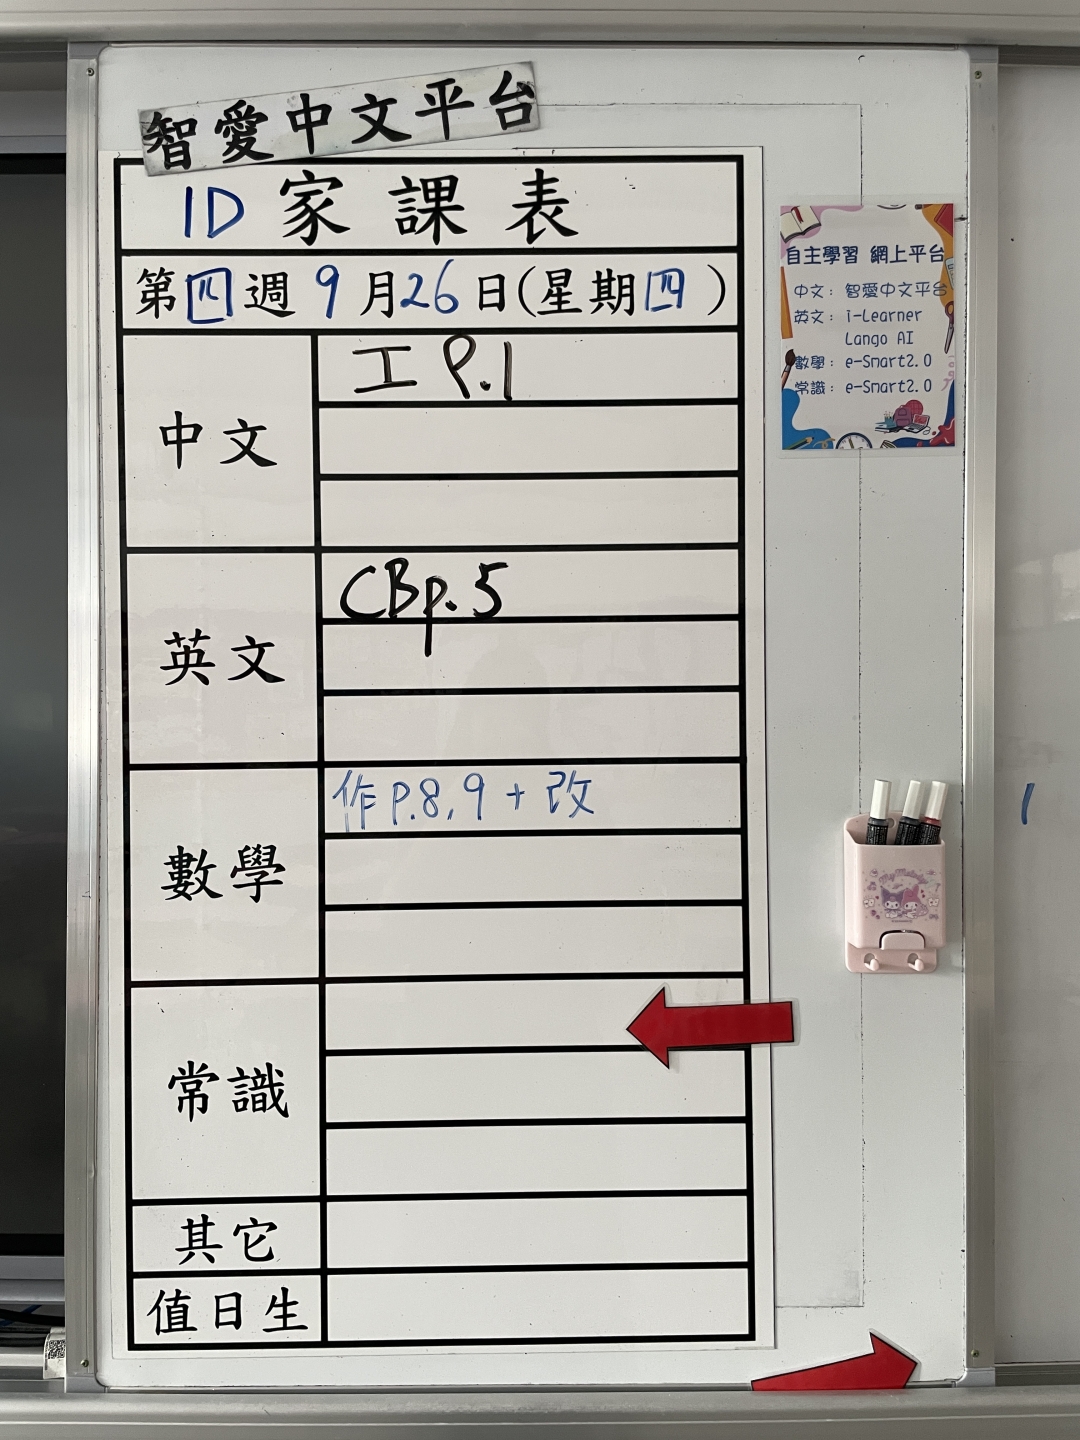 智愛中文平台
1D 家課表
第四週9月26日(星期四)
中文
工 P.1
英文
CBp.5
數學
作 P.8,9 + 改
常識
其它
值日生
自主學習 網上平台
中文: 智愛中文平台
英文: i-Learner
Lango AI
數學: e-Smart2.0
常識: e-Smart2.0